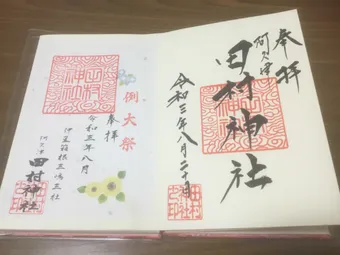 奉拝
阿久津
田村神社
令和三年八月二十日
田村神社
例大祭
奉拝
令和三年八月
伊豆箱根三嶋三社
阿久津
田村神社